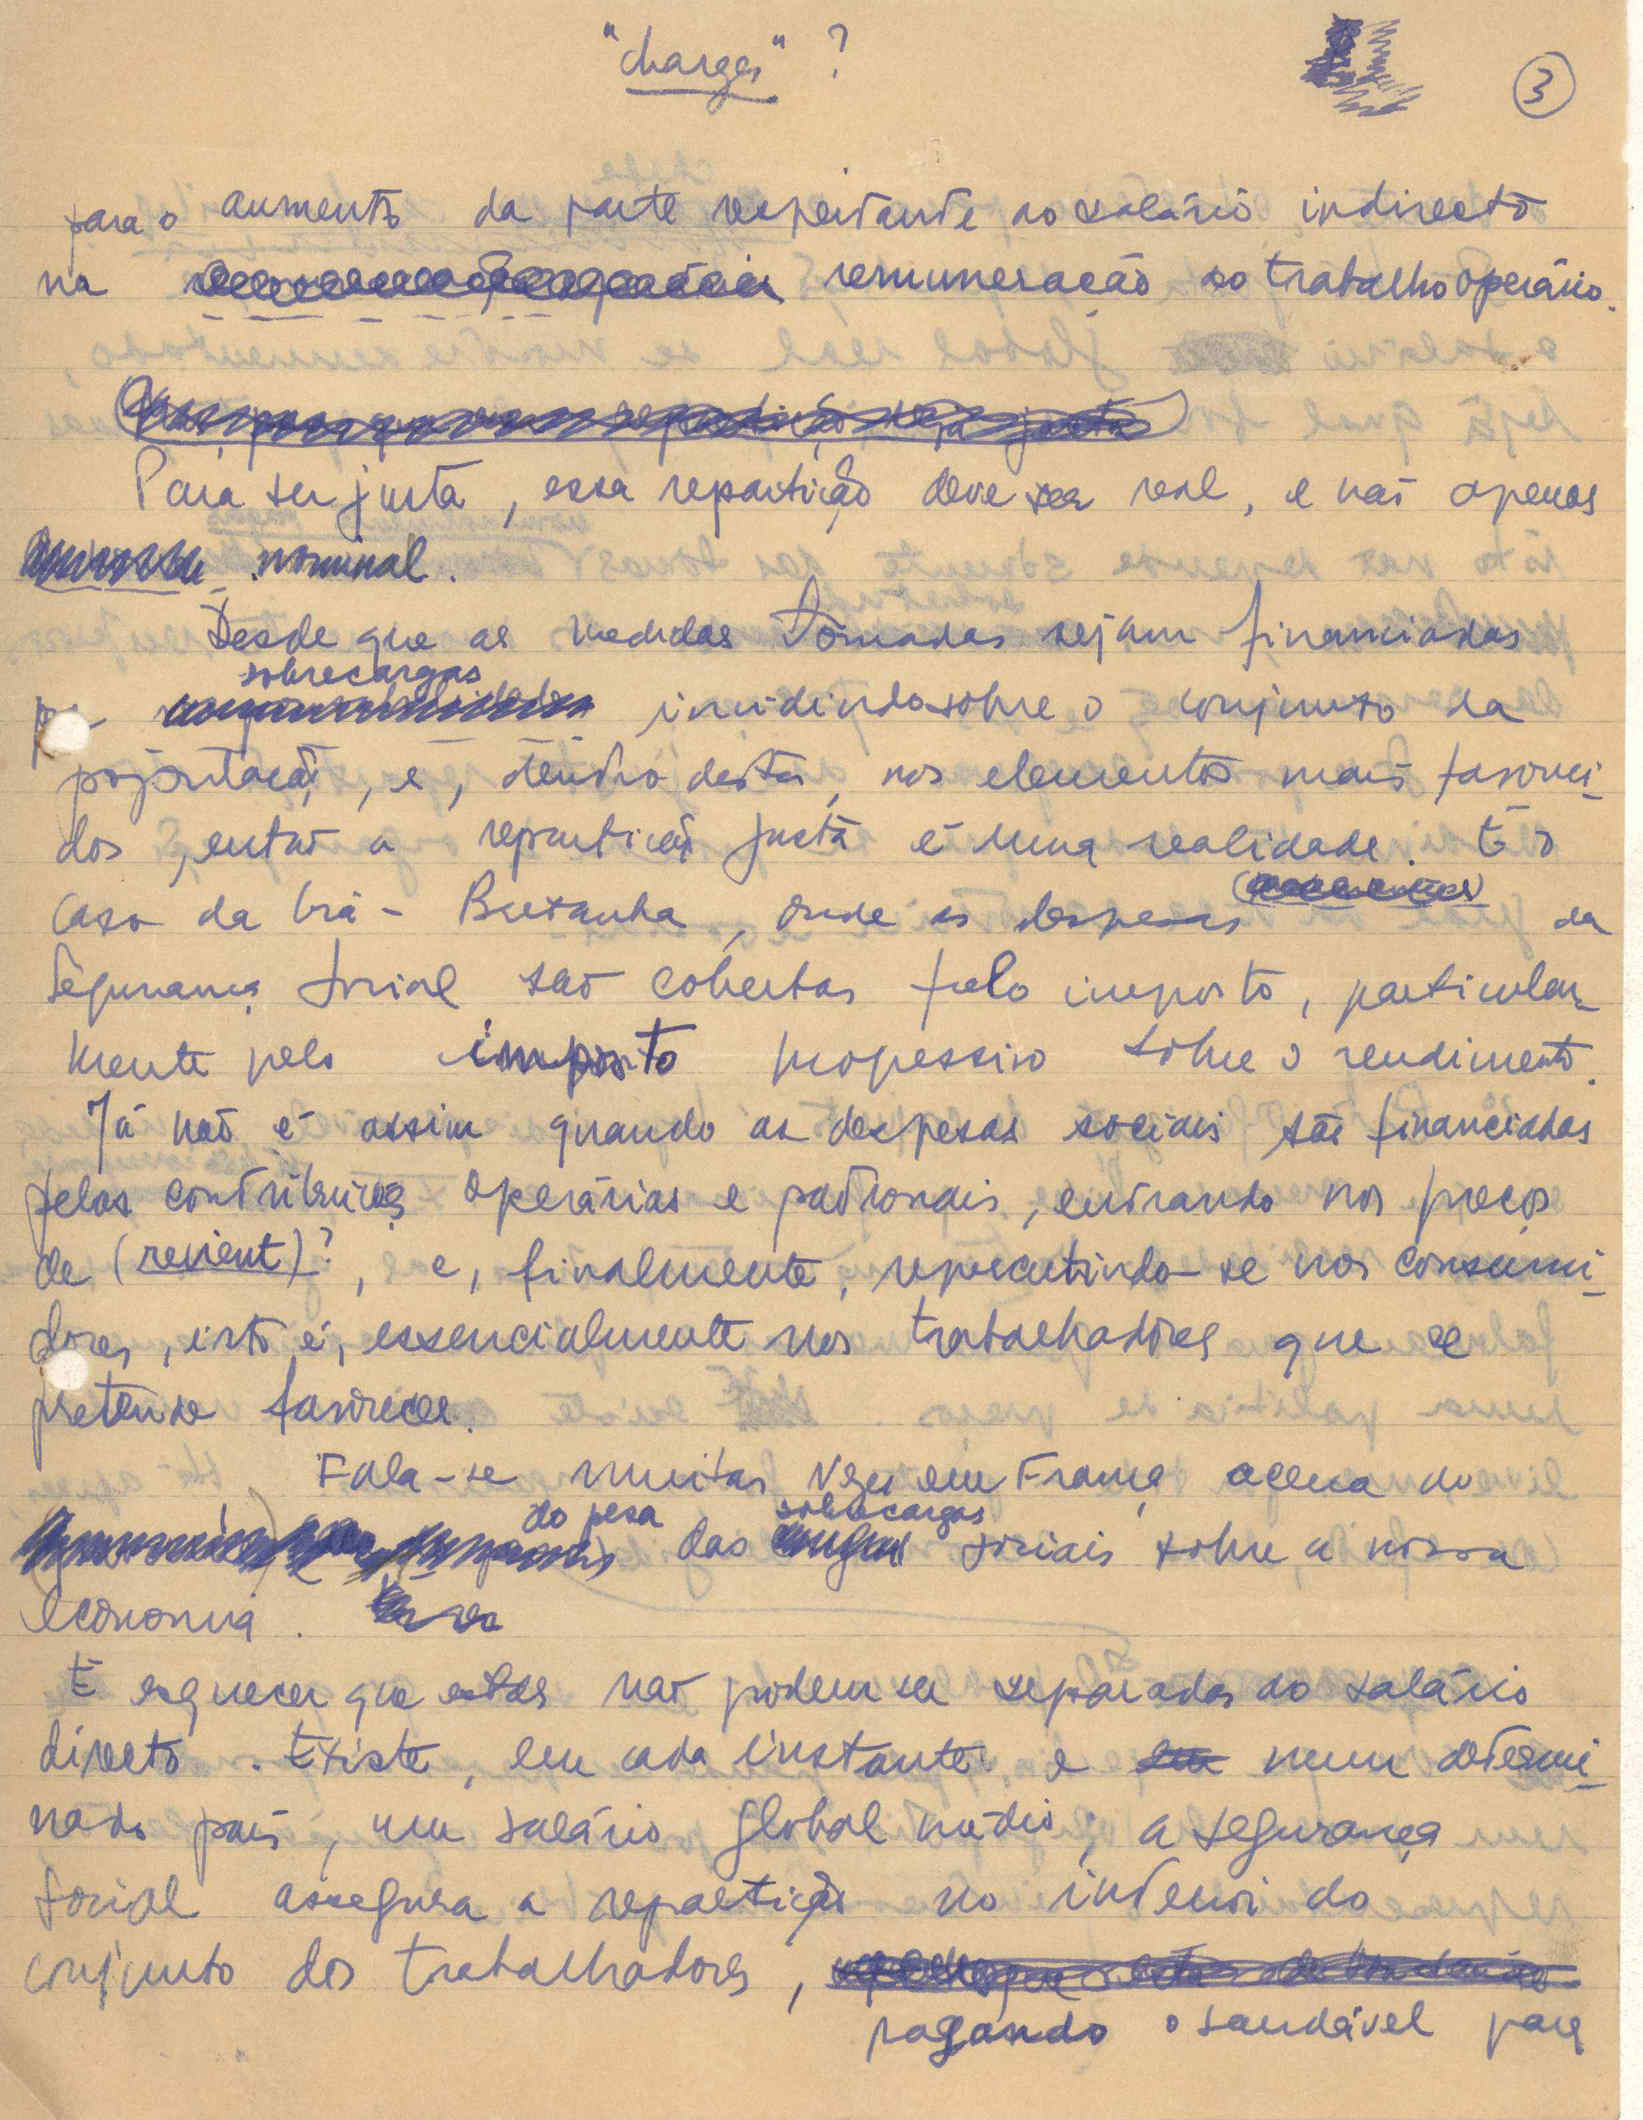 "charges" ?
3
para o aumento da parte respeitante ao salário indirecto
na remuneração do trabalho operário.
Para ser justa, essa repartição deve ser real, e não apenas
nominal.
Desde que as medidas tomadas sejam financiadas
sobrecargas
incidindo sobre o conjunto da
população, e, dentro desta, nos elementos mais favoreci-
dos, então a repartição justa é uma realidade. É o
caso da Grã-Bretanha, onde as despesas da
Segurança Social são cobertas pelo imposto, particular-
mente pelo imposto progressivo sobre o rendimento.
Já não é assim quando as despesas sociais são financiadas
pelas contribuições operárias e patronais, entrando nos preços
de (revient)?, e, finalmente, repercutindo-se nos consumi-
dores, isto é, essencialmente nos trabalhadores que se
pretende favorecer.
Fala-se muitas vezes em França acerca do
do pesa sobrecargas
das sociais sobre a nossa
economia.
É esquecer que estas não podem ser separadas do salário
directo. Existe, em cada instante e num determi-
nado país, um salário global médio; a segurança
Social assegura a repartição no interior do
conjunto dos trabalhadores,
pagando o saudável para